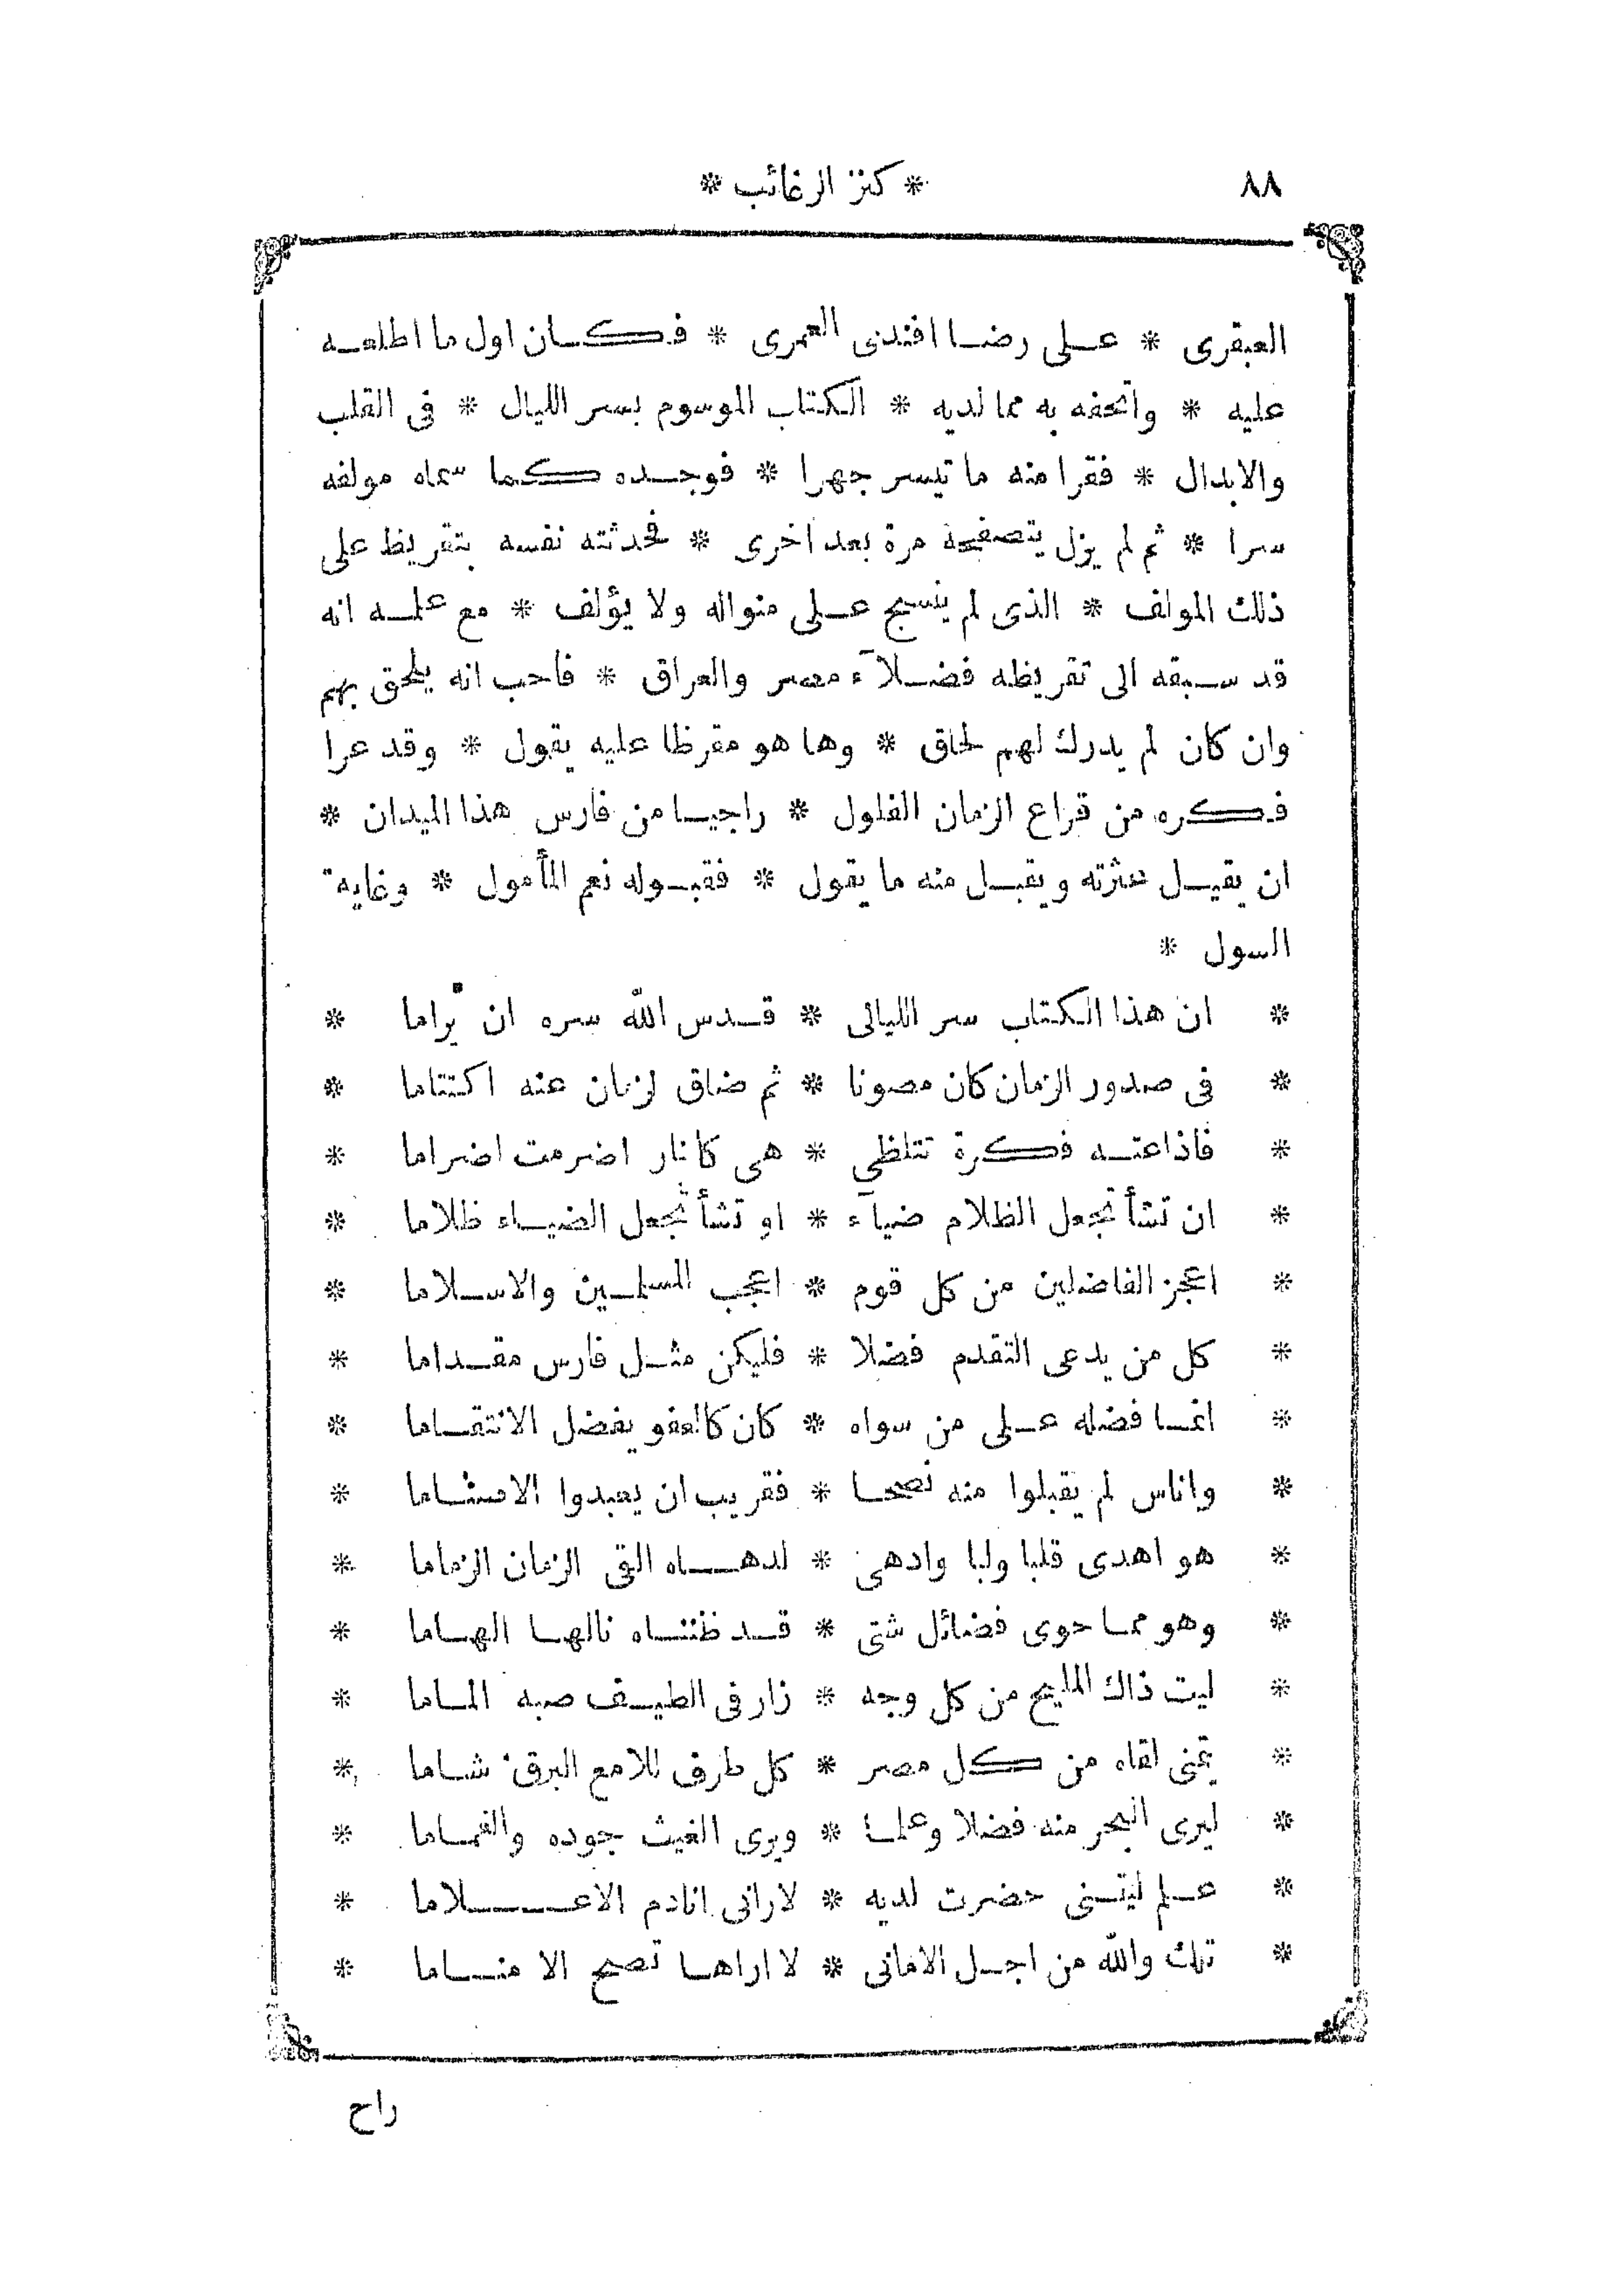 ٨٨
* كنز الرغائب *
العبقرى * على رضا افندى العمرى * فكان اول ما اطلعه
عليه * واتحفه به مما لديه * الكتاب الموسوم بسر الليال * فى القلب
والابدال * فقرا منه ما تيسر جهرا * فوجده كما سماه مولفه
سرا * ثم لم يزل يتصفحه مرة بعد اخرى * فحدثته نفسه بتقريظ على
ذلك المولف * الذى لم ينسج على منواله ولا يؤلف * مع علمه انه
قد سبقه الى تقريظه فضلآء مصر والعراق * فاحب انه يلحق بهم
وان كان لم يدرك لهم لحاق * وها هو مقرظا عليه يقول * وقد عرا
فكره من قراع الزمان الفلول * راجيا من فارس هذا الميدان *
ان يقيل عثرته ويقبل منه ما يقول * فقبوله نعم المأمول * وغاية
السول *
* ان هذا الكتاب سر الليالى * قدس الله سره ان يراما *
* فى صدور الزمان كان مصونا * ثم ضاق لزمان عنه اكتتاما *
* فاذاعته فكرة تتلظي * هى كانار اضرمت اضراما *
* ان تشأ تجعل الظلام ضيآء * او تشأ تجعل الضياء ظلاما *
* اعجز الفاضلين من كل قوم * اعجب المسلمين والاسلاما *
* كل من يدعى التقدم فضلا * فليكن مثل فارس مقداما *
* انما فضله على من سواه * كان كالعفو يفضل الانتقاما *
* واناس لم يقبلوا منه نصحا * فقريب ان يعبدوا الاصناما *
* هو اهدى قلبا ولبا وادهي * لدهاه القى الزمان الزماما *
* وهو مما حوى فضائل شتى * قد ظنناه نالها الهاما *
* ليت ذاك المليح من كل وجه * زار فى الطيف صبه الماما *
* يتمنى لقاه من كل مصر * كل طرف للامع البرق شاما *
* ليرى البحر منه فضلا وعلما * ويرى الغيث جوده والغماما *
* علم ليتنى حضرت لديه * لارانى انادم الاعلاما *
* تلك والله من اجل الامانى * لا اراها تصح الا مناما *
راح